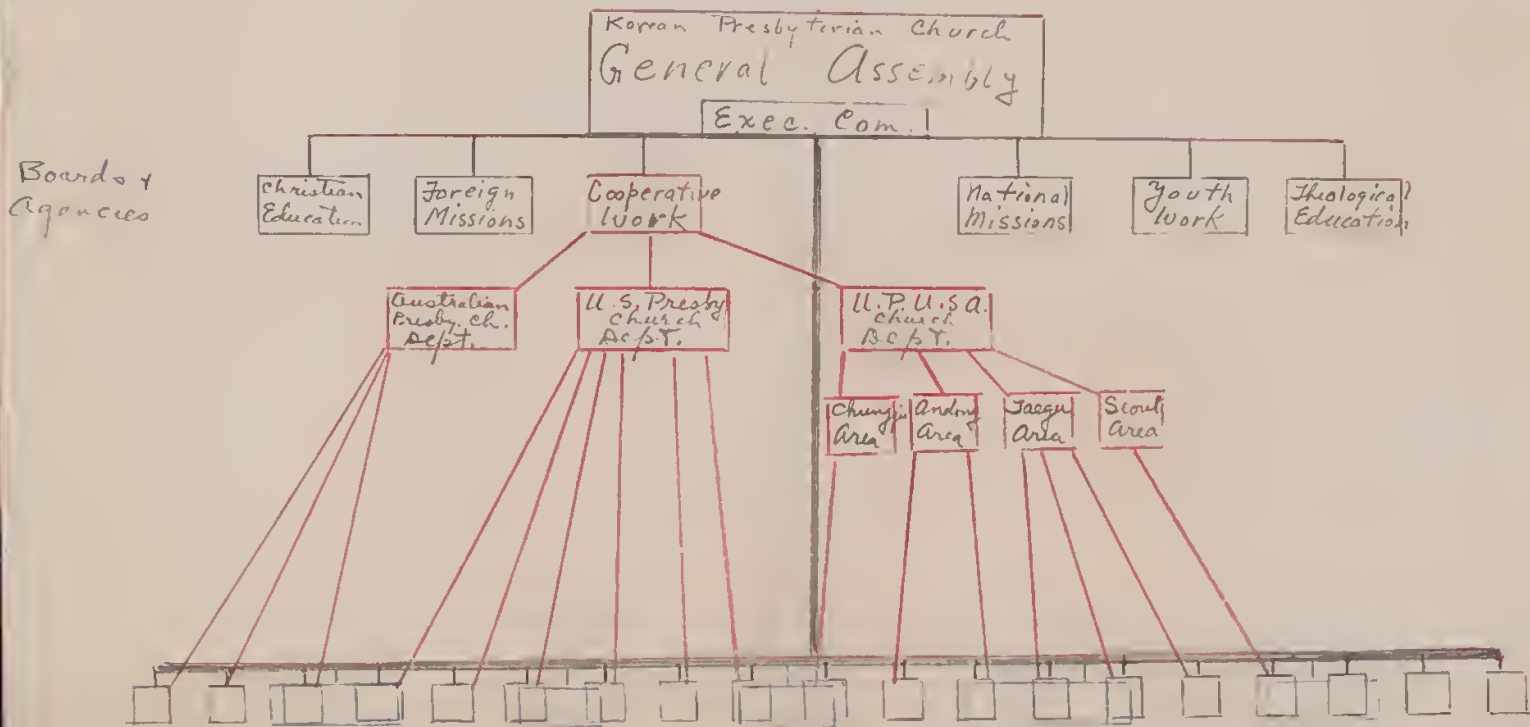 Korean Presbyterian Church
General Assembly
Exec. Com.
Boards &
Agencies
Christian
Education
Foreign
Missions
Cooperative
Work
National
Missions
Youth
Work
Theological
Education
Australian
Presby. Ch.
Dept.
U.S. Presby
Church
Dept.
U.P.U.S.A.
Church
Dept.
Chungju
Area
Andong
Area
Taegu
Area
Seoul
Area